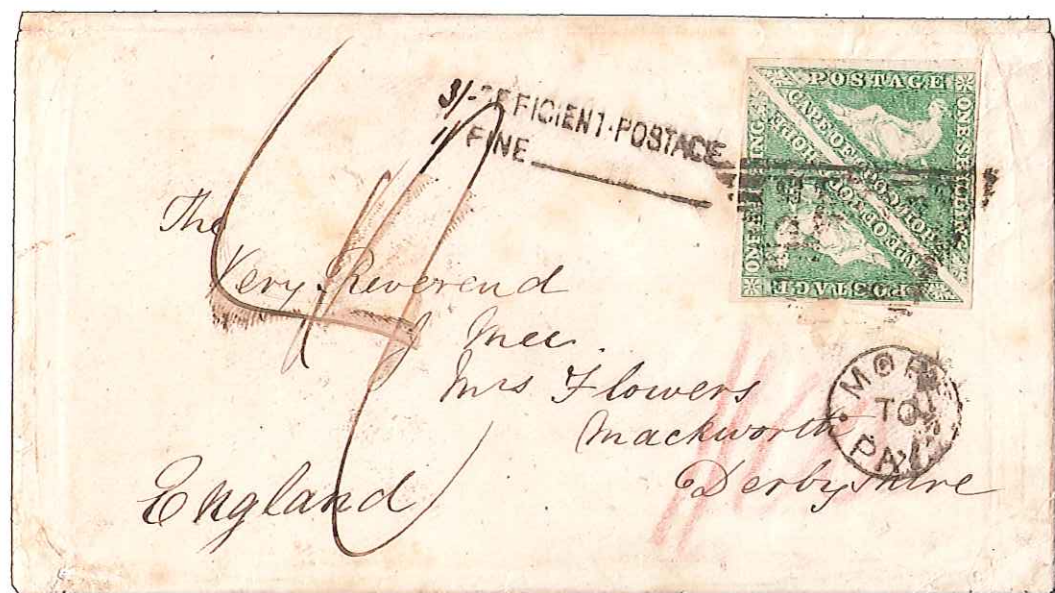 3/- DEFICIENT-POSTAGE
1/ FINE
POSTAGE
ONE SHILLING
CAPE OF GOOD HOPE
CAPE OF GOOD HOPE
ONE SHILLING
POSTAGE
The
Very Reverend
Mrs Flowers
Mackworth
Derbyshire
England
MORE
TO
PAY
4